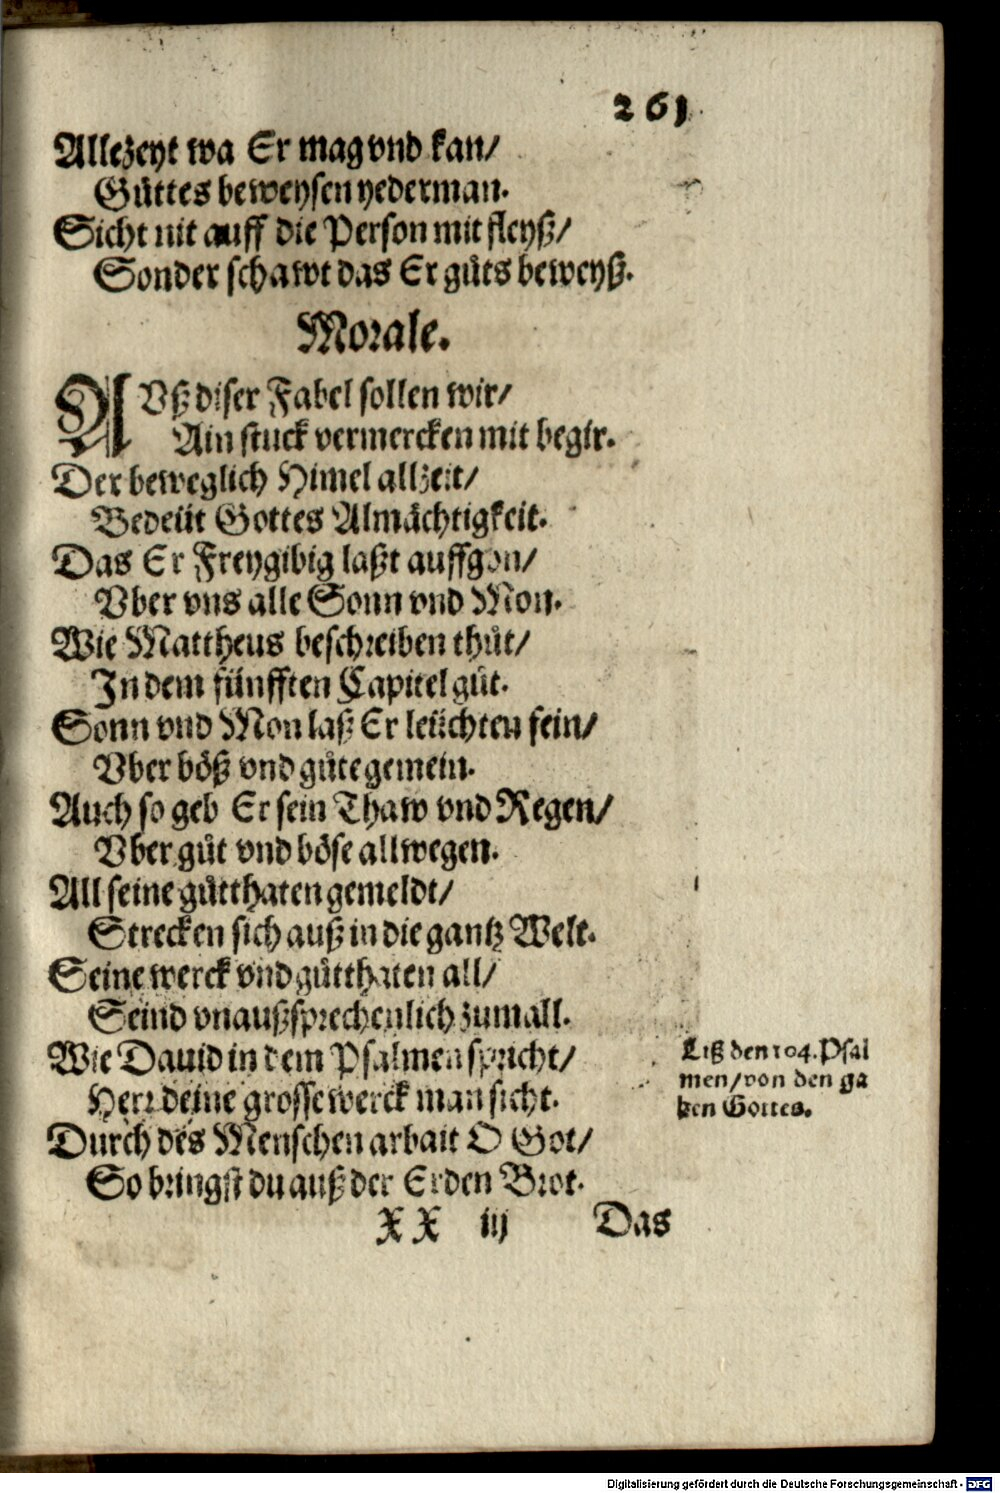 261
Allezeyt wa Er mag vnd kan/
Gůttes beweysen yederman.
Sicht nit auff die Person mit fleyß/
Sonder schawt das Er gůts beweyß.
Morale.
AVß diser Fabel sollen wir/
Ain stuck vermercken mit begir.
Der beweglich Himel allzeit/
Bedeüt Gottes Almächtigkeit.
Das Er Freygibig laßt auffgon/
Vber vns alle Sonn vnd Mon.
Wie Mattheus beschreiben thůt/
In dem fünfften Capitel gůt.
Sonn vnd Mon laß Er leüchten fein/
Vber böß vnd gůte gemein.
Auch so geb Er sein Thaw vnd Regen/
Vber gůt vnd böse allwegen.
All seine gůtthaten gemeldt/
Strecken sich auß in die gantz Welt.
Seine werck vnd gůtthaten all/
Seind vnaußsprechenlich zumall.
Wie Dauid in dem Psalmen spricht/
Herr deine grosse werck man sicht.
Durch des Menschen arbait O Got/
So bringst du auß der Erden Brot.
Liß den 104. Psal
men/von den ga
ben Gottes.
XX iij Das
Digitalisierung gefördert durch die Deutsche Forschungsgemeinschaft - DFG